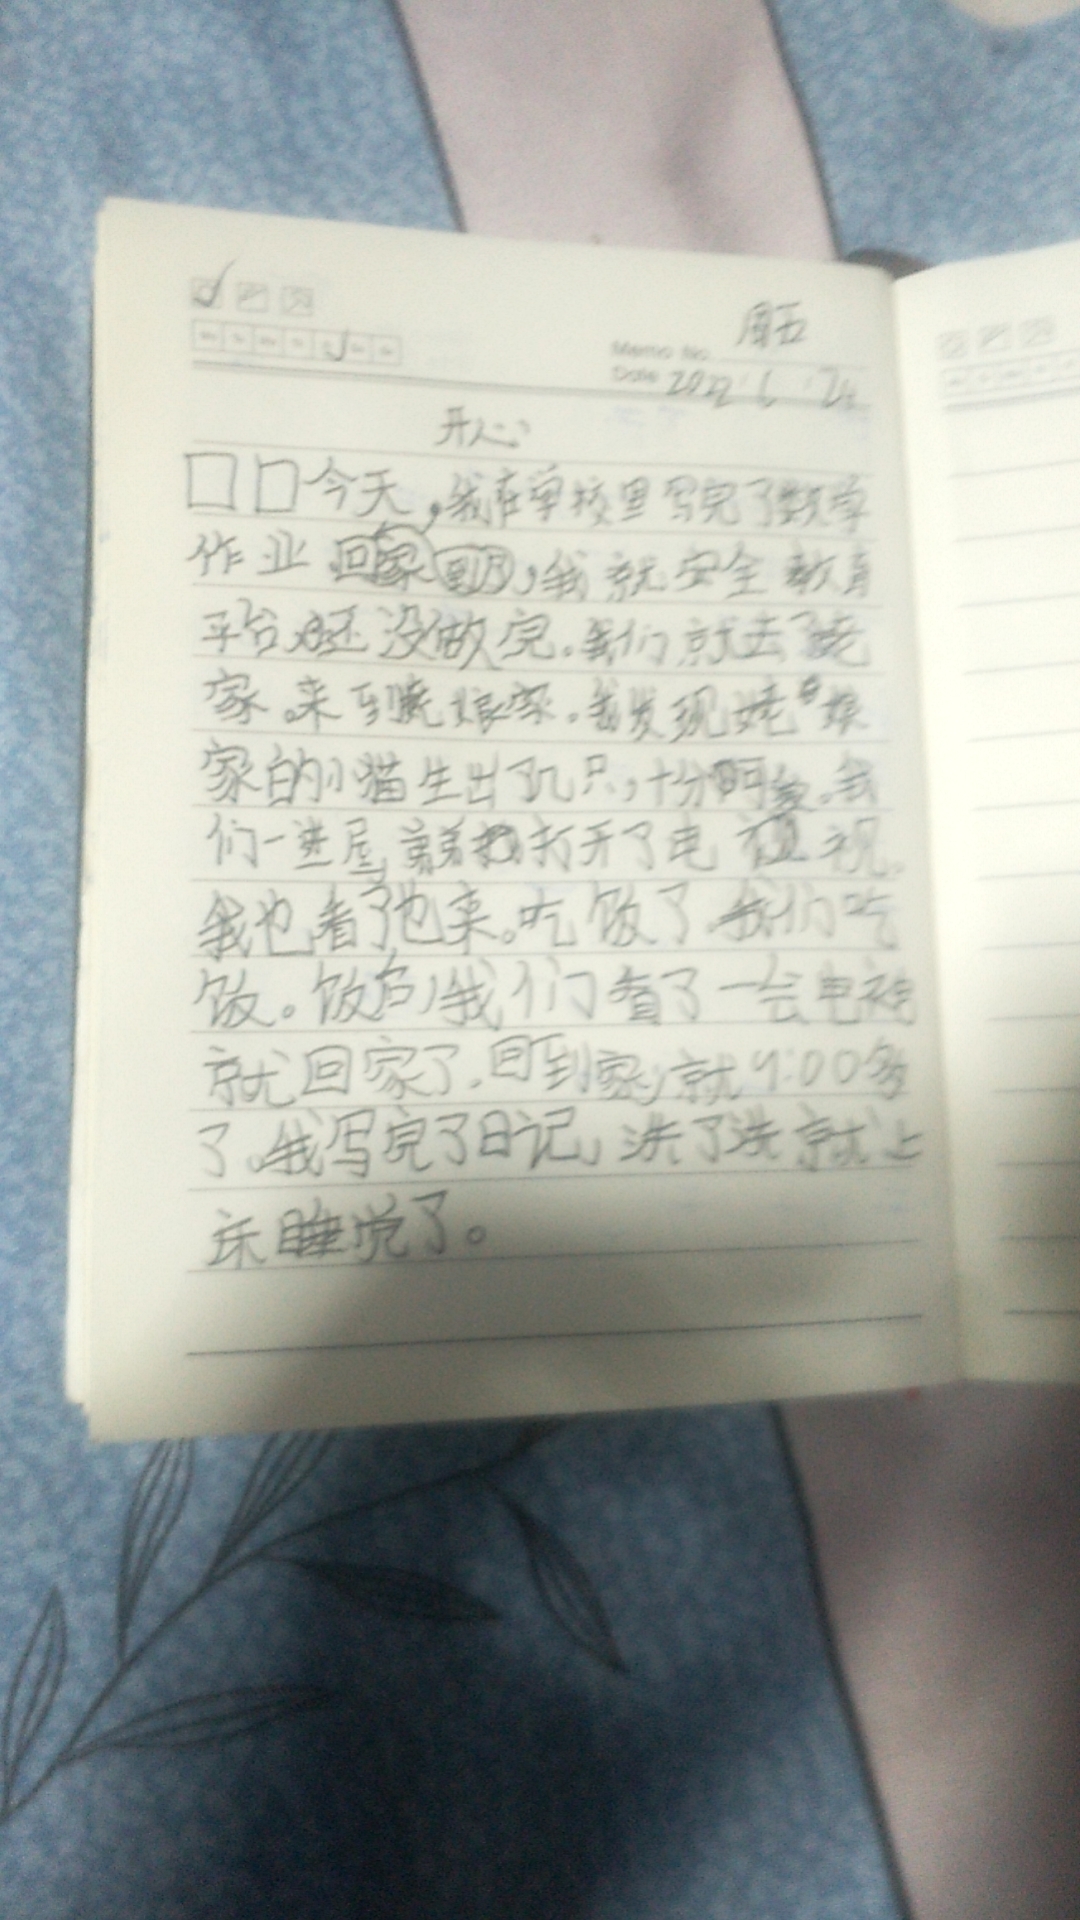 周五
Memo No.
Date 2022 6 24
开心
今天,我在学校里写完了数学
作业回家,我就安全教育
平台还没做完。我们就去了姥
家。来到姥娘家。我发现姥娘
家的小猫生出了几只,十分可爱。我
们一进屋,弟弟打开了电视。
我也看了起来。吃饭了我们吃
饭。饭后,我们看了一会电视
就回家了.回到家,就9:00多
了.我写完了日记,洗了洗就上
床睡觉了。